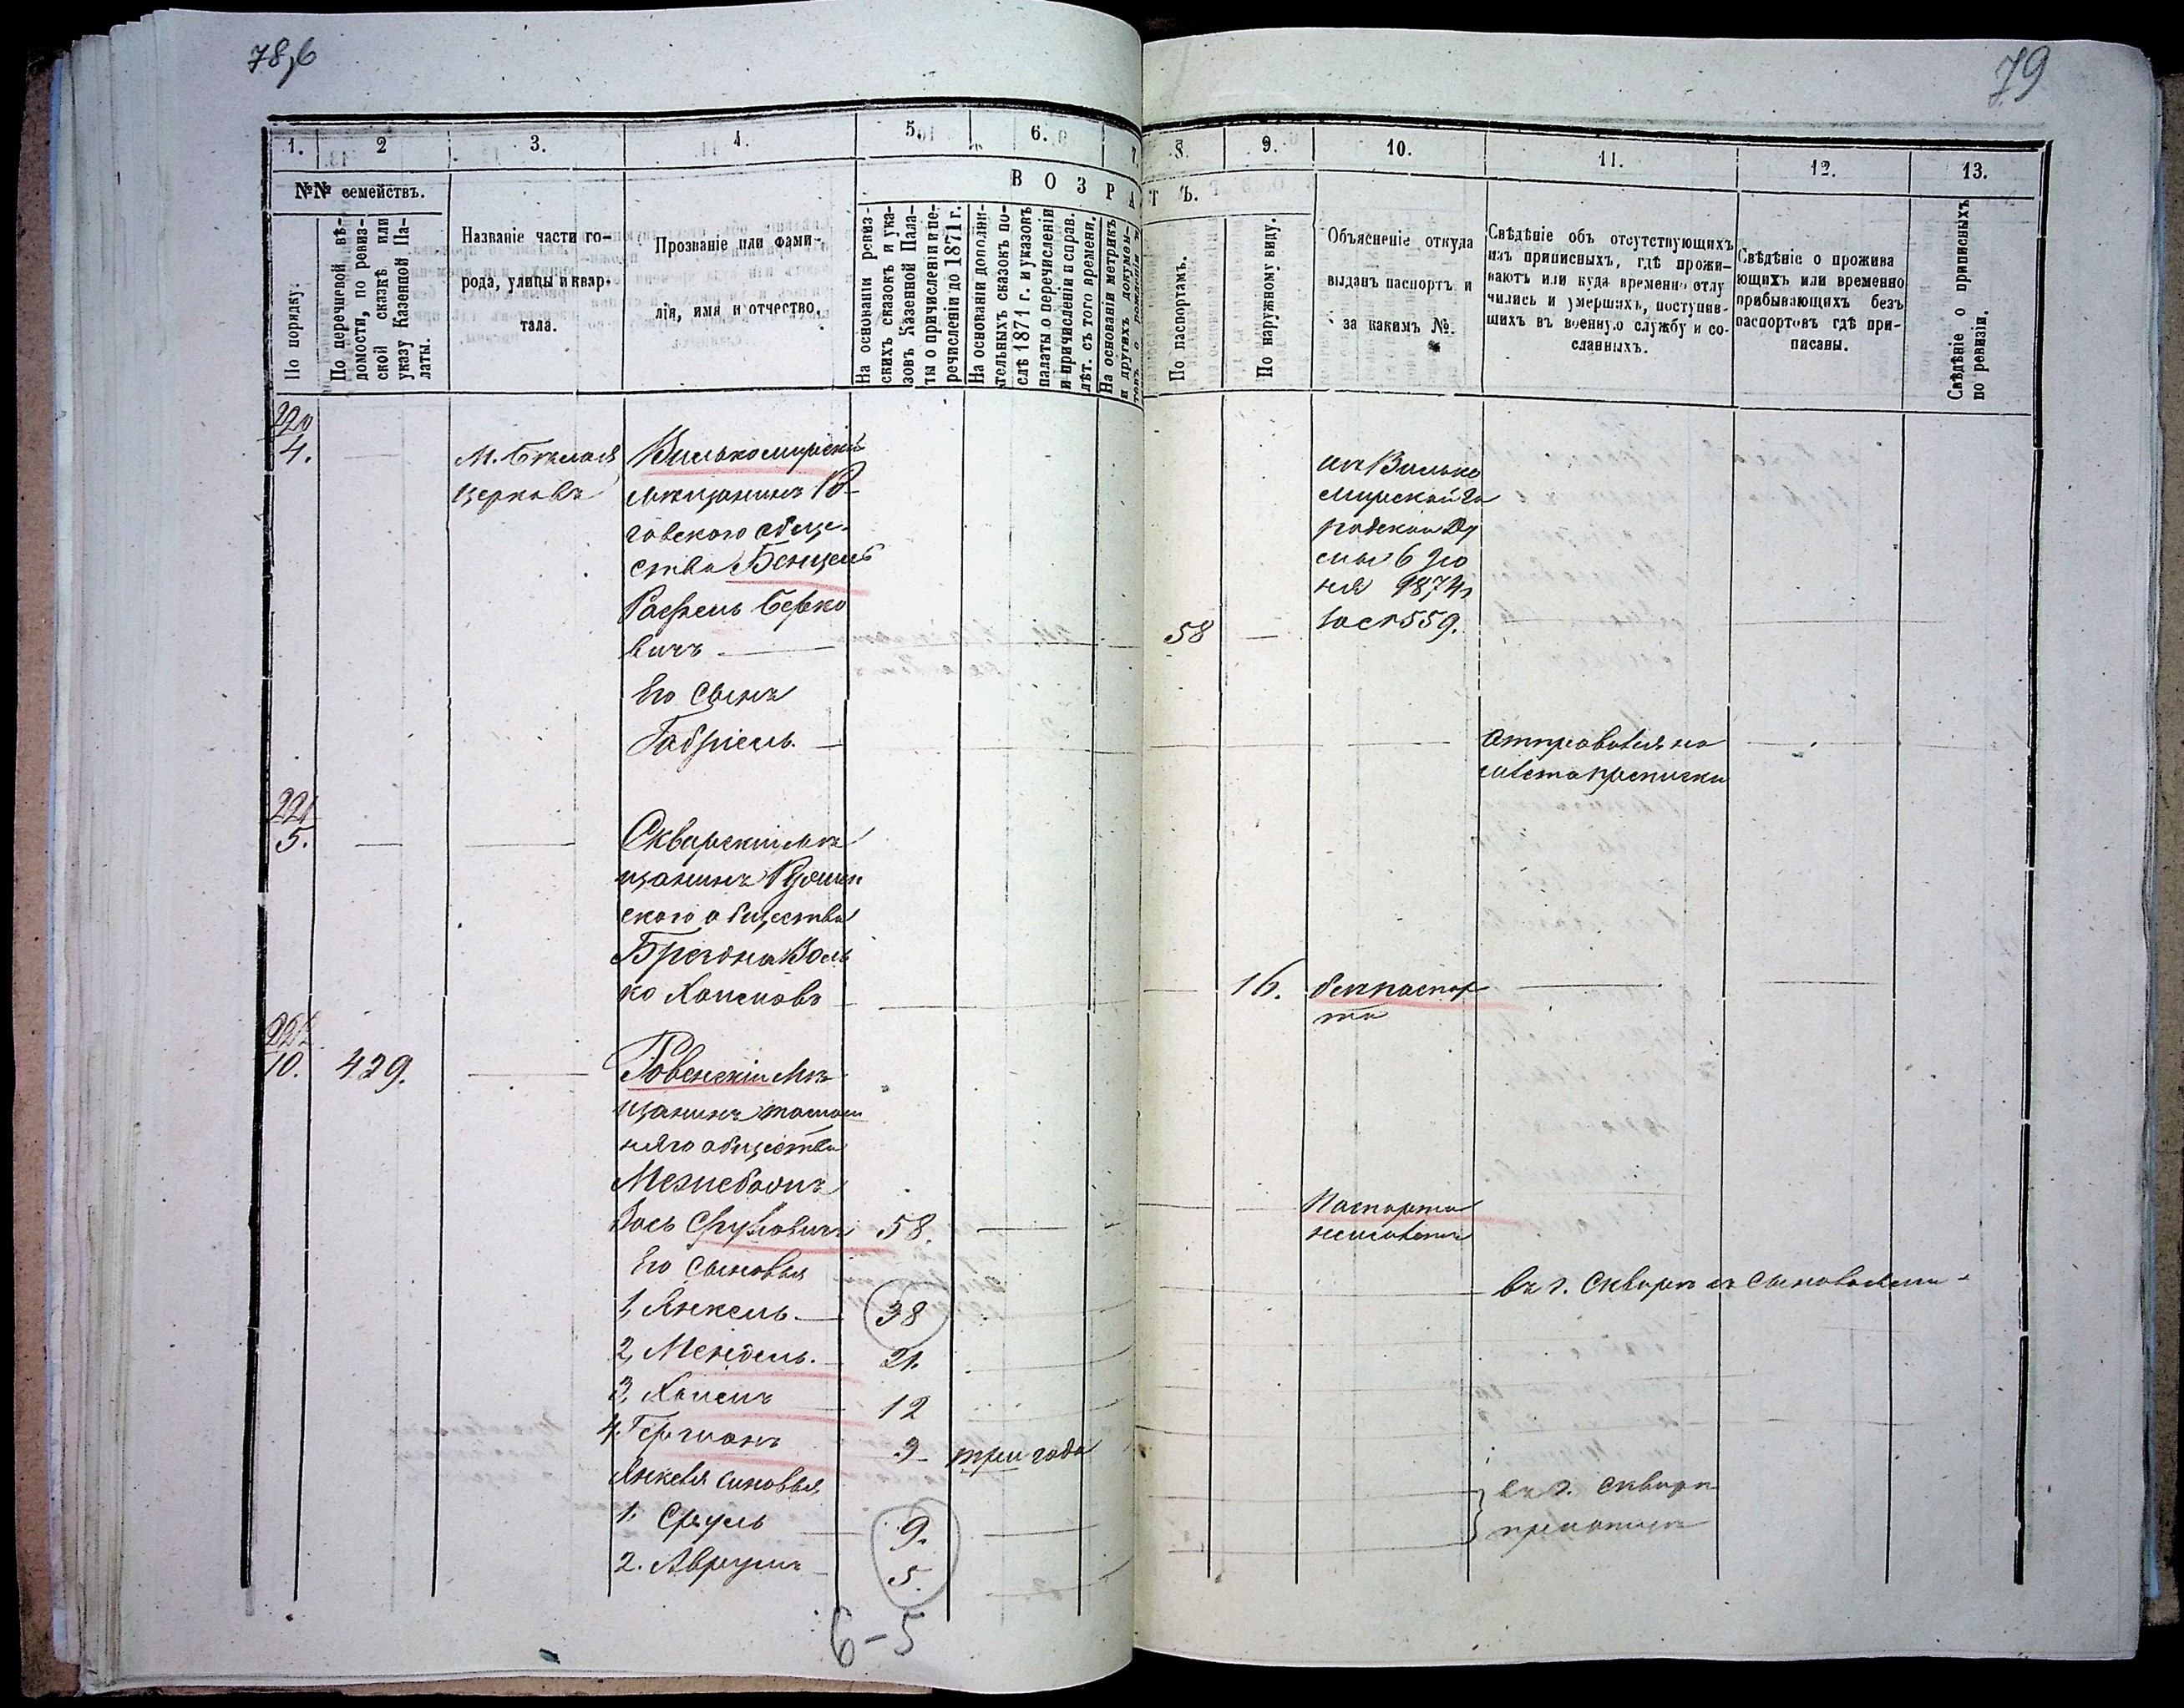 78,б
79
1.
2
3.
4.
5.
6.
7.
8.
9.
10.
11.
12.
13.
№№ семействъ.
По порядку.
По перечневой вѣ-
домости, по ревиз-
ской сказкѣ или
указу Казенной Па-
латы.
Названіе части го-
рода, улицы и квар-
тала.
Прозваніе или фами-
лія, имя и отчество.
ВОЗРА
ТЪ.
На основаніи ревиз-
скихъ сказокъ и ука-
зовъ Казенной Пала-
ты о причисленіи и пе-
речисленіи до 1871 г.
На основаніи дополни-
тельныхъ сказокъ по-
слѣ 1871 г. и указовъ
палаты о перечисленіи
и причисленіи и справ.
лѣт. съ того времени.
На основаніи метрикъ
и другихъ докумен-
товъ о рожденіи и
По паспортамъ.
По наружному виду.
Объясненіе откуда
выданъ паспортъ и
за какимъ №.
Свѣдѣніе объ отсутствующихъ
изъ приписныхъ, гдѣ прожи-
ваютъ или куда временно отлу
чились и умершихъ, поступив-
шихъ въ военную службу и со-
сланныхъ.
Свѣдѣніе о прожива
ющихъ или временно
прибывающихъ безъ
паспортовъ гдѣ при-
писаны.
Свѣдѣніе о приписныхъ
по ревизіи.
220
4.
М. Бѣлая
церковь
Вилькомирскій
мѣщанинъ Ро-
говского обще-
ства Бенцель
Рафель Берко
вичъ
58
изъ Вилько
мирской Го
родской Ду
мы 6 Iю
ня 1874 г
за № 559.
Его сынъ
Габріель.
Отправился на
мѣсто приписки
221
5.
Сквирскій мѣ
щанинъ
ского общества
Брегона Воль
ко Хаимовъ
16.
безъ паспор
та
222
10.
429.
Ровенскій мѣ
щанинъ тамош
няго общества
Межибовъ
Іось Сруловичъ
58.
Паспорта
неимѣетъ
Его сыновья
въ г. Сквирѣ съ сыновьями
1, Янкель
38
2, Мендель.
21.
3, Хаимъ
12
4. Германъ
3
три года
Янкеля сыновья
1. Сруль
9.
въ г. Сквирѣ
2. Аврумъ
5.
6-5